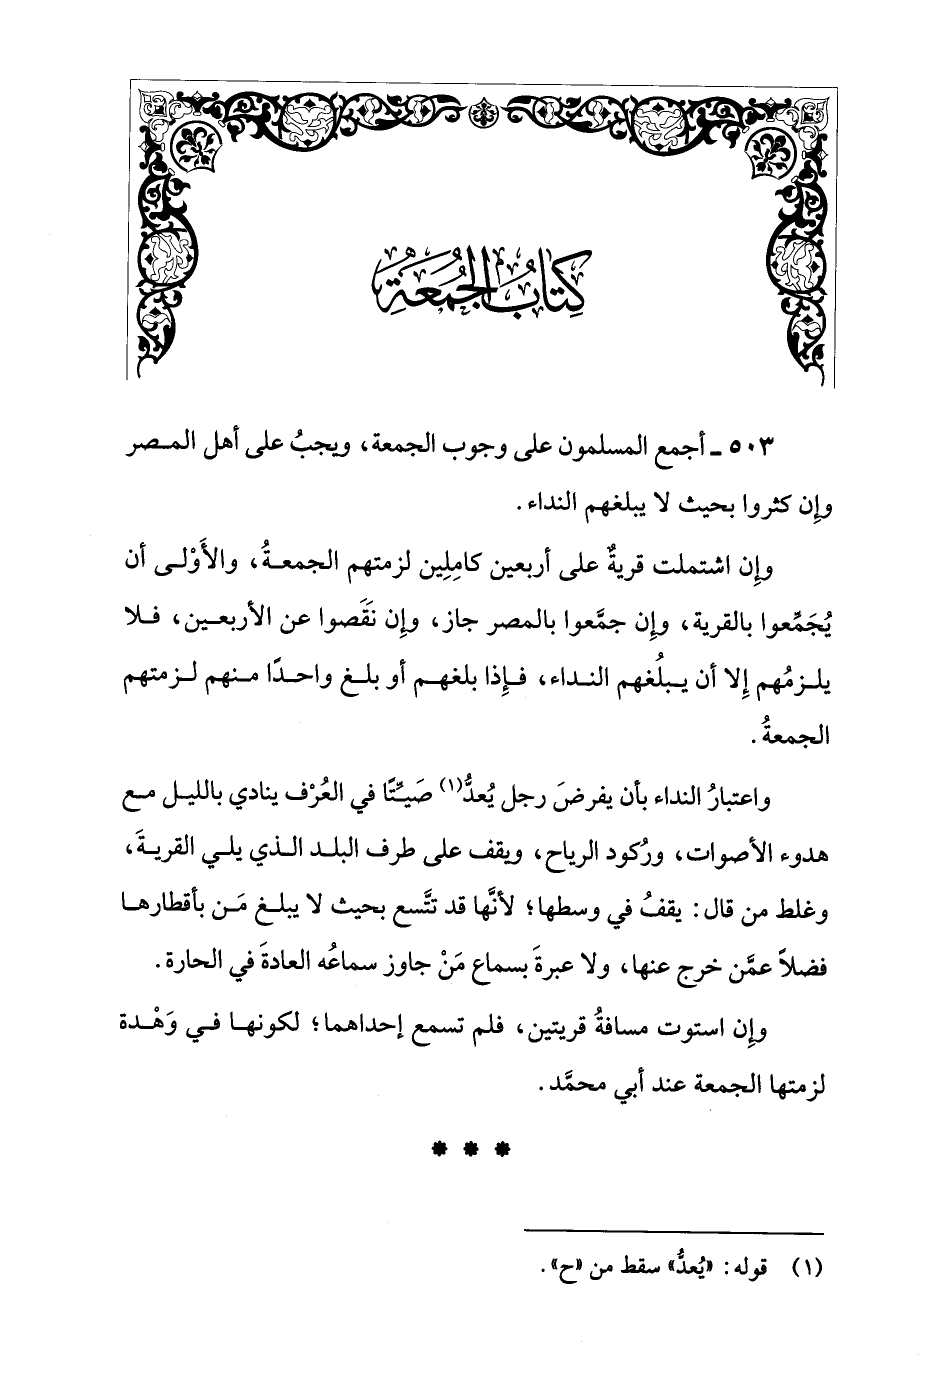 كِتَابُ الجُمُعَةِ
٥٠٣ ـ أجمع المسلمون على وجوب الجمعة، ويجبُ على أهل المصر
وإن كثروا بحيث لا يبلغهم النداء.
وإن اشتملت قريةٌ على أربعين كامِلِين لزمتهم الجمعةُ، والأَوْلى أن
يُجَمِّعوا بالقرية، وإن جمَّعوا بالمصر جاز، وإن نَقَصوا عن الأربعين، فلا
يلزمُهم إلا أن يبلُغهم النداء، فإذا بلغهم أو بلغ واحدًا منهم لزمتهم
الجمعةُ.
واعتبارُ النداء بأن يفرضَ رجل يُعدُّ(١) صَيِّتًا في العُرْف ينادي بالليل مع
هدوء الأصوات، ورُكود الرياح، ويقف على طرف البلد الذي يلي القريةَ،
وغلط من قال: يقفُ في وسطها؛ لأنَّها قد تتَّسع بحيث لا يبلغ مَن بأقطارها
فضلاً عمَّن خرج عنها، ولا عبرةَ بسماع مَنْ جاوز سماعُه العادةَ في الحارة.
وإن استوت مسافةُ قريتين، فلم تسمع إحداهما؛ لكونها في وَهْدة
لزمتها الجمعة عند أبي محمَّد.
* * *
(١) قوله: «يُعدُّ» سقط من «ح».